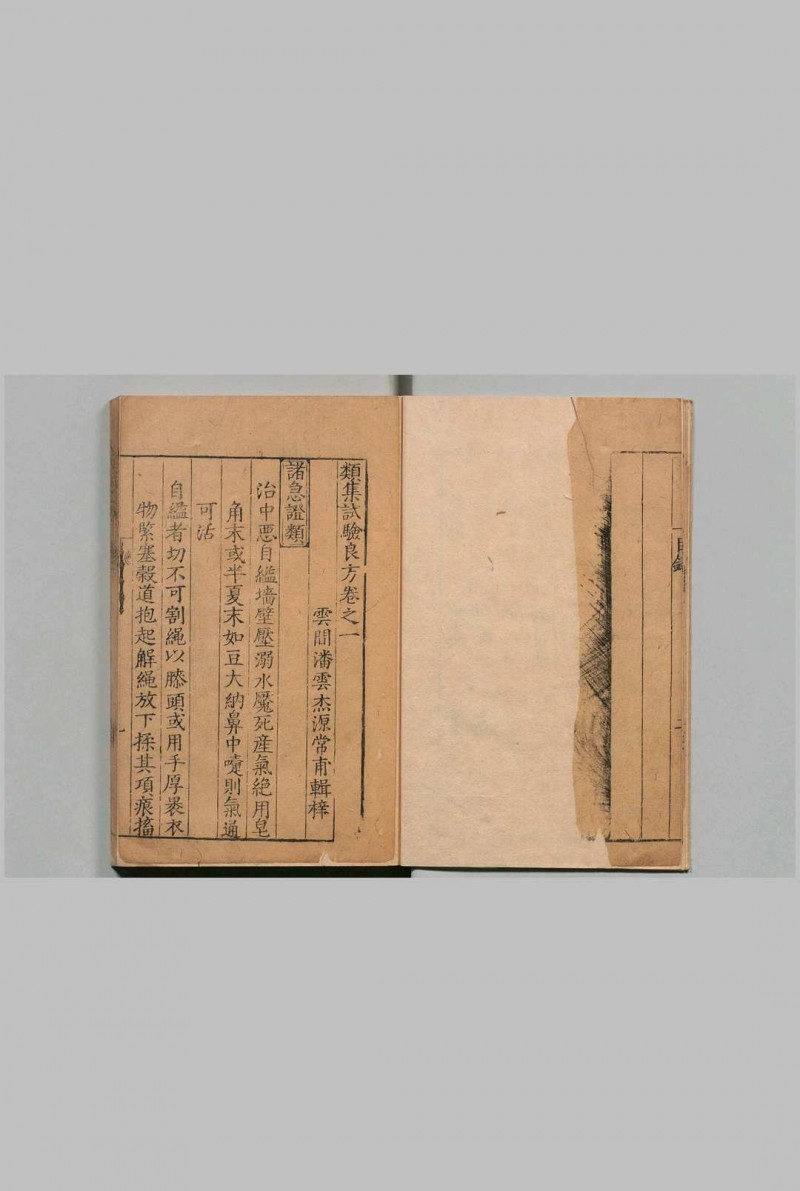 目錄
二
類集試驗良方卷之一
雲間潘雲杰源常甫輯梓
諸急證類
治中惡自縊墻壁壓溺水魘死産氣絶用皂
角末或半夏末如豆大納鼻中嚏則氣通
可活
自縊者切不可割繩以膝頭或用手厚裹衣
物緊塞穀道抱起解繩放下揉其項痕搐
一